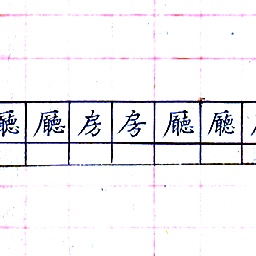 廳廳房房廳廳